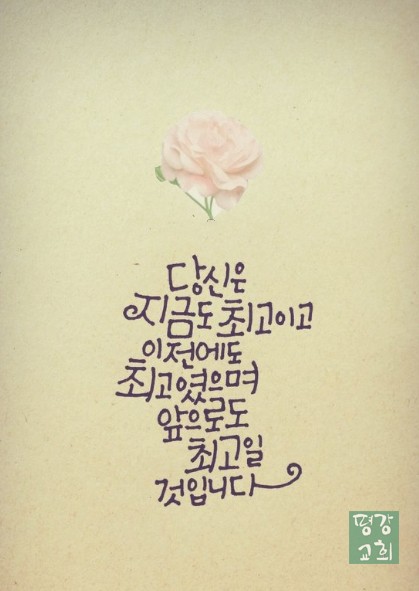 당신은
지금도 최고이고
이전에도
최고였으며
앞으로도
최고일
것입니다
평강
교회